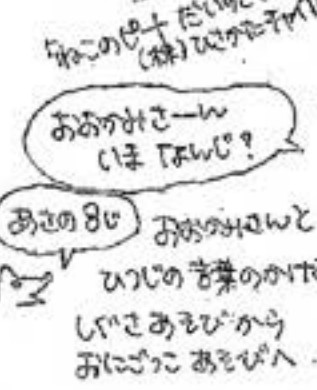 ねこのピート だいすきな
(株)ひさかたチャイル
おおかみさーん
いま なんじ?
あさの8じ
おおかみさんと
ひつじの言葉のかけ
しぐさあそびから
おにごっこあそびへ